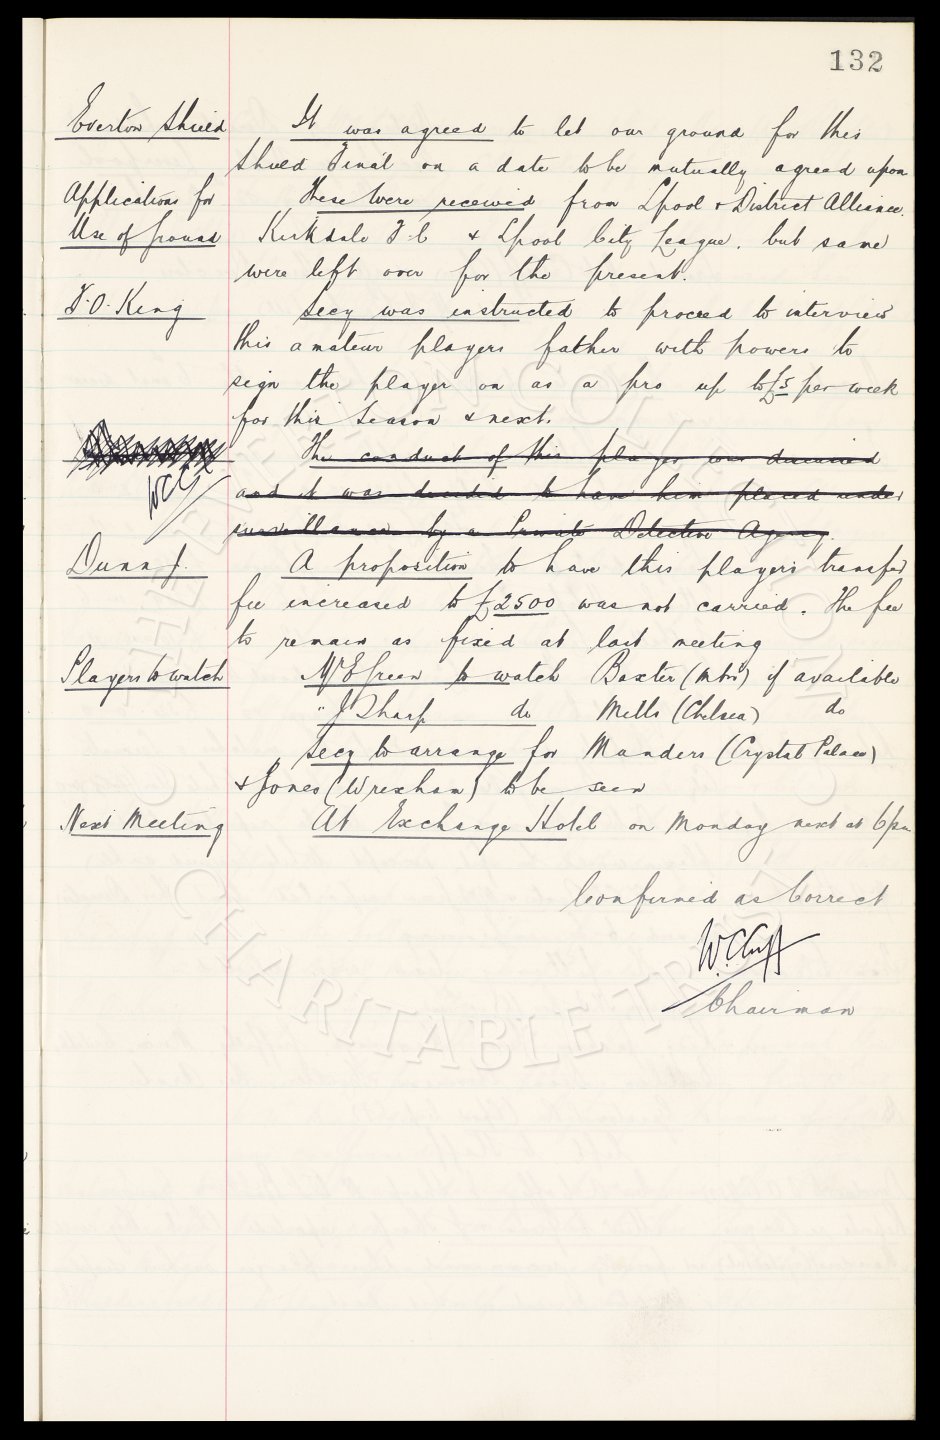 132
Everton Shield It was agreed to let our ground for this
Shield Final on a date to be mutually agreed upon
Applications for These were received from Lpool & District Alliance.
Use of ground Kirkdale F.C & Lpool City League. but same
were left over for the present.
F.O. King Secy was instructed to proceed to interview
this amateur players father with powers to
sign the player on as a pro up to £5 per week
for this season & next.
The conduct of this player was discussed
WCC and it was decided to have him placed under
surveillance by a Private Detective Agency.
Dunn J. A proposition to have this players transfer
fee increased to £2500 was not carried. The fee
to remain as fixed at last meeting
Players to watch Mr E Green to watch Baxter (Mbro) if available
" J Sharp do Mills (Chelsea) do
Secy to arrange for Manders (Crystal Palace)
& Jones (Wrexham) to be seen
Next Meeting At Exchange Hotel on Monday next at 6pm
Confirmed as Correct
W.C. Cuff
Chairman
THE EVERTON COLLECTION CHARITABLE TRUST